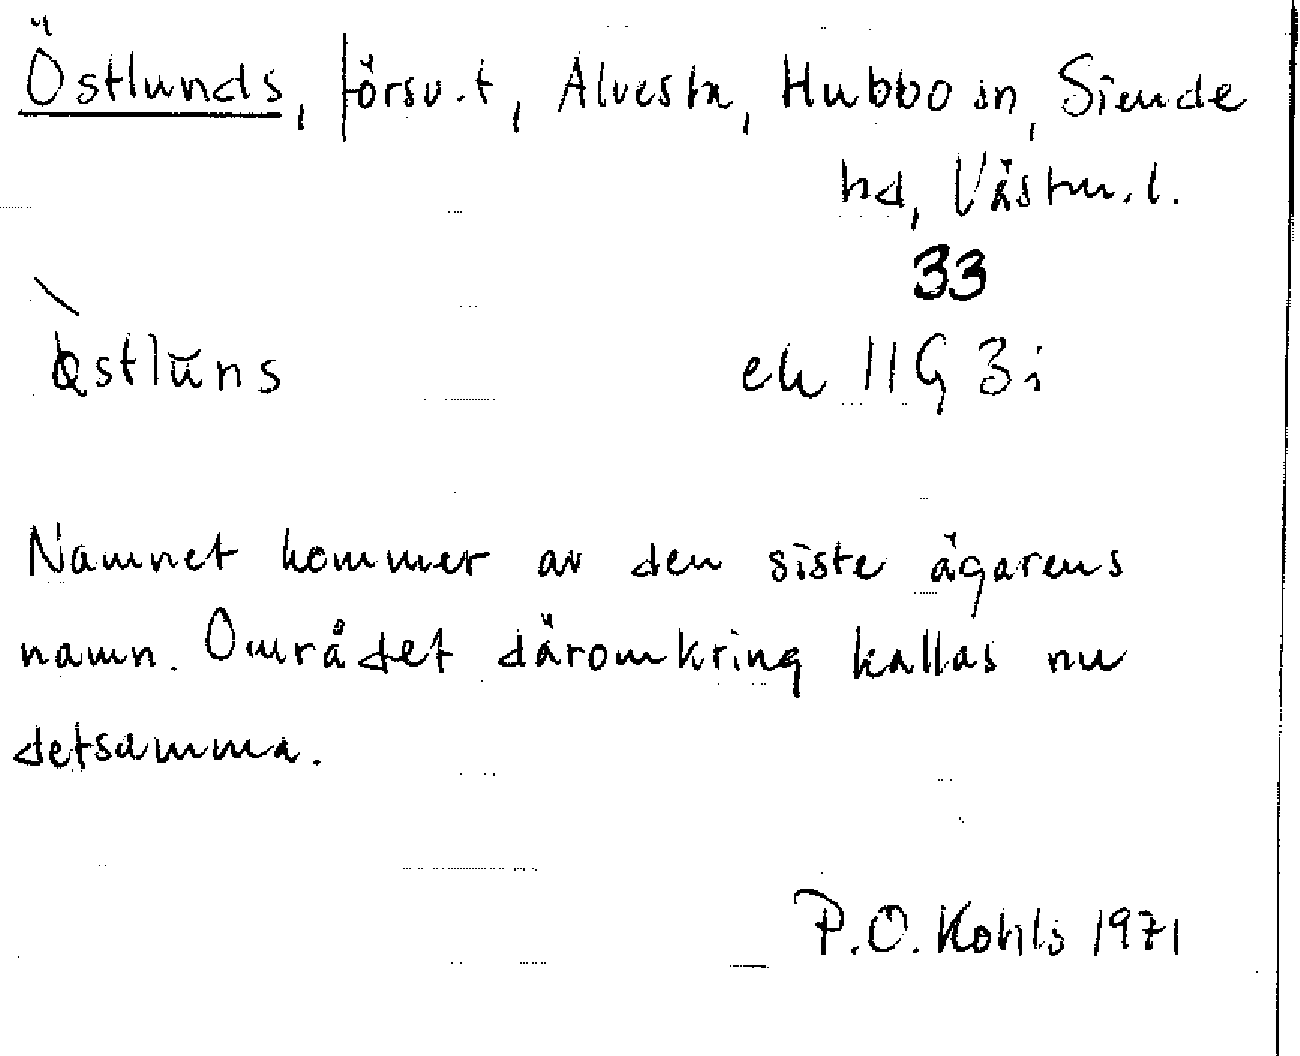 Östlunds, försv. t, Alvesta, Hubbo sn, Siende
hd, Västm. l.
33
ek 11G 3i
Namnet kommer av den siste ägarens
namn. Området däromkring kallas nu
detsamma.
P.O. Kohls 1971